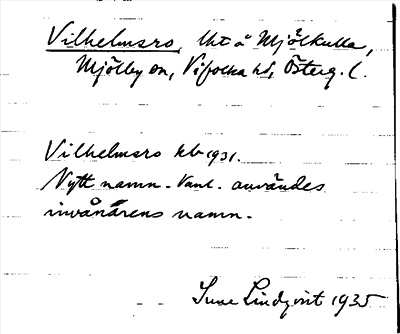 Vilhelmsro, lht å Mjölkulla,
Mjölby sn, Vifolka hd, Österg. l.
Vilhelmsro kb 1931.
Nytt namn. Vanl. användes
invånarens namn.
Sune Lindqvist 1935